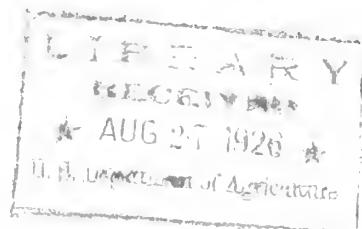 LIBRARY
RECEIVED
★ AUG 27 1926 ★
U. S. Department of Agriculture